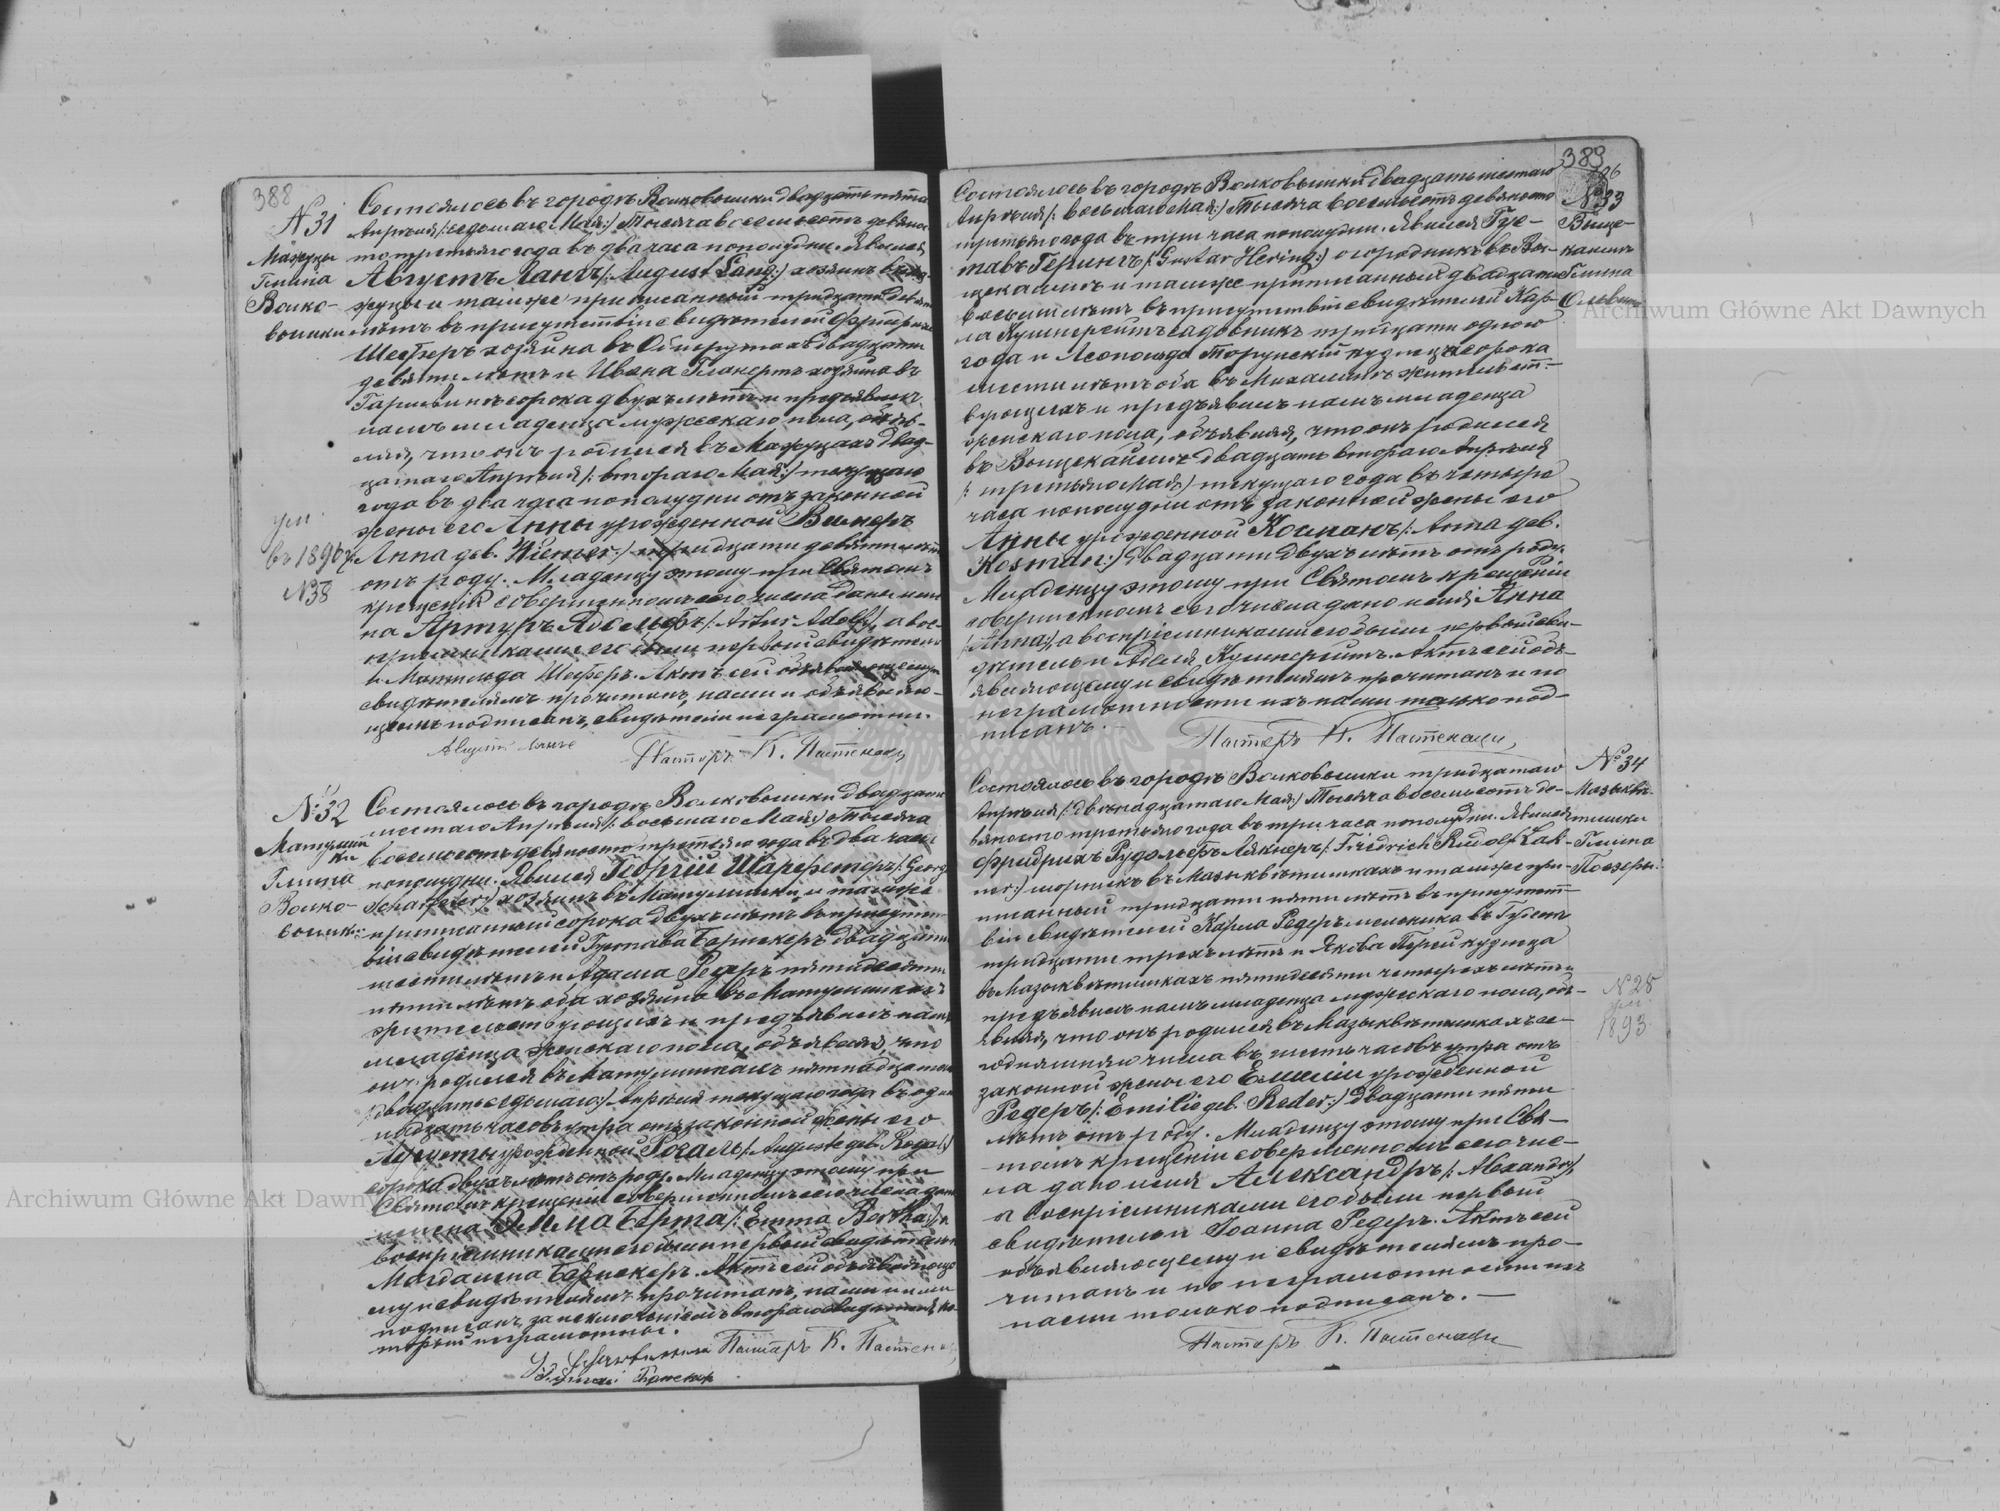 388
№ 31
Мажуцы
Гмина
Волко-
вышки
ум.
въ 1896 г.
№ 38
Состоялось въ городѣ Волковышки двадцать пятаго
Апрѣля /: седьмаго Мая :/ Тысяча восемьсотъ девяно-
сто третьяго года въ два часа пополудни. Явился
Августъ Лангъ /: August Lang :/ хозяинъ въ Ма-
жуцы и тамже приписанный тридцати девяти
лѣтъ въ присутствіи свидѣтелей Фридриха
Шеферъ хозяина въ двадцати
девяти лѣтъ и Ивана хозяина въ
сорока двухъ лѣтъ и предъявилъ
намъ младенца мужескаго пола, объяв-
ляя, что онъ родился въ Мажуцахъ двад-
цатаго Апрѣля /: втораго Мая :/ текущаго
года въ два часа пополудни отъ законной
жены его Анны урожденной Вимеръ
Анна geb. Wiemer :/ тридцати девяти лѣтъ
отъ роду. Младенцу этому при Святомъ
крещеніи совершенномъ сего числа даны имена
на Артуръ Адольфъ /: Artur Adolf :/, а вос-
пріемниками его были первый свидѣтель
и Матильда Шеферъ. Актъ сей объявляющему
свидѣтелямъ прочитанъ, нами и объявляю-
щимъ подписанъ, свидѣтели неграмотны.
Августъ Лангъ Пасторъ К. Пастенаци
№ 32
Матулиш
ки
Гмина
Волко-
вышки
Состоялось въ городѣ Волковышки двадцать
шестаго Апрѣля /: восьмаго Мая :/ Тысяча
восемьсотъ девяносто третьяго года въ два часа
пополудни. Явился Георгій Шарфетеръ /: Georg
Scharfeter :/ хозяинъ въ Матулишки и тамже
приписанный сорока двухъ лѣтъ въ присутст-
віи свидѣтелей Густава Бернекеръ двадцати
шести лѣтъ и Адама Редеръ пятидесяти
пяти лѣтъ оба хозяина въ Матулишкахъ
жительствующихъ и предъявилъ намъ
младенца женскаго пола, объявляя, что
онъ родился въ Матулишкахъ пятнадцатаго
/: двадцать седьмаго :/ Апрѣля текущаго года въ один-
надцать часовъ утра отъ законной жены его
Августы урожденной Рогаль /: Auguste geb. Rogal :/
сорока двухъ лѣтъ отъ роду. Младенцу этому при
Святомъ крещеніи совершенномъ сего числа даны
имена Эмма Берта /: Emma Bertha :/, а
воспріемниками его были первый свидѣтель и
Магдалина Бернекеръ. Актъ сей объявляюще-
му и свидѣтелямъ прочитанъ, нами и ими
подписанъ за исключеніемъ втораго свидѣтеля ко-
торый неграмотны.
Пасторъ К. Пастенаци
389
Состоялось въ городѣ Волковышки двадцать шестаго
Апрѣля /: восьмаго Мая :/ Тысяча восемьсотъ девяносто
третьяго года въ три часа пополудни. Явился Гус-
тавъ Герингъ /: Gustav Hering :/ огородникъ въ Вой-
шекалитъ и тамже приписанный двадцати
восьми лѣтъ въ присутствіи свидѣтелей Кар-
ла садовникъ тридцати одного
года и Леопольда Торунскій кузнецъ сорока
шести лѣтъ оба въ Михалинѣ жительст-
вующихъ и предъявилъ намъ младенца
женскаго пола, объявляя, что онъ родился
въ двадцать втораго Апрѣля
/: третьяго Мая :/ текущаго года въ четыре
часа пополудни отъ законной жены его
Анны урожденной Косманъ /: Anna geb.
Kosman :/ двадцати двухъ лѣтъ отъ роду.
Младенцу этому при Святомъ крещеніи
совершенномъ сего числа дано имя Анна
/: Anna :/, а воспріемниками его были первый сви-
дѣтель и Аделя. Актъ сей объ-
являющему и свидѣтелямъ прочитанъ и по
неграмотности ихъ нами только под-
писанъ.
Пасторъ К. Пастенаци
№ 33
Гмина
Состоялось въ городѣ Волковышки тридцатаго
Апрѣля /: двѣнадцатаго Мая :/ Тысяча восемьсотъ де-
вяносто третьяго года въ три часа пополудни. Явился
Фридрихъ Рудольфъ Лякнеръ /: Friedrich Rudolf Lak-
ner :/ въ Мазыквѣтишкахъ и тамже при-
писанный тридцати пяти лѣтъ въ присутст-
віи свидѣтелей Карла Редеръ мельника въ
тридцати трехъ лѣтъ и Якова кузнеца
въ Мазыквѣтишкахъ пятидесяти четырехъ лѣтъ и
предъявилъ намъ младенца мужескаго пола, объ-
являя, что онъ родился въ Мазыквѣтишкахъ се-
годняшняго числа въ шесть часовъ утра отъ
законной жены его Емиліи урожденной
Редеръ /: Emilie geb. Reder :/ двадцати пяти
лѣтъ отъ роду. Младенцу этому при Свя-
томъ крещеніи совершенномъ сего чис-
ла дано имя Александръ /: Alexander :/,
а воспріемниками его были первый
свидѣтель и Іоанна Редеръ. Актъ сей
объявляющему и свидѣтелямъ про-
читанъ и по неграмотности ихъ
нами только подписанъ. —
Пасторъ К. Пастенаци
№ 34
Мазыквѣ-
тишки
Гмина
№ 28
ум.
1893.
Archiwum Główne Akt Dawnych
Archiwum Główne Akt Dawnych